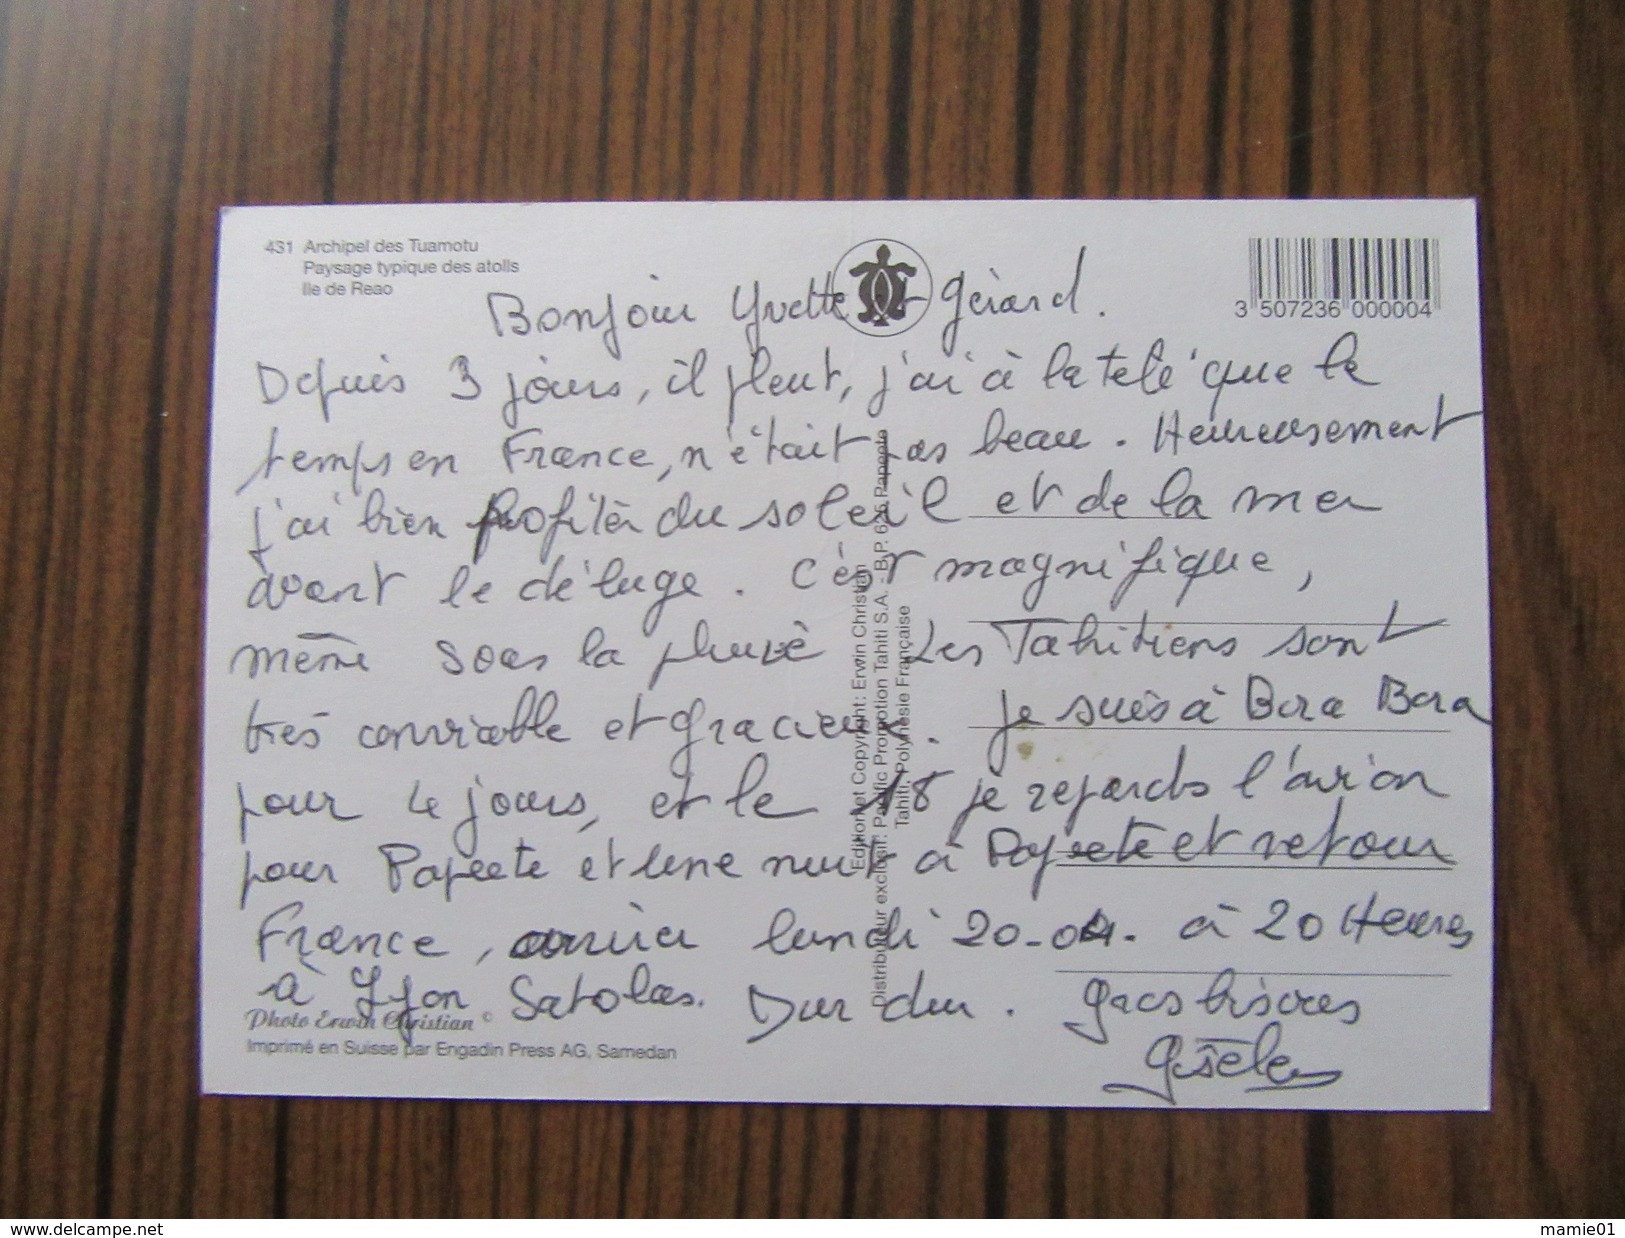 431 Archipel des Tuamotu
Paysage typique des atolls
Ile de Reao
3 507236 000004
Bonjour Yvette et Gérard.
Depuis 3 jours, il pleut, j'ai à la télé que le
temps en France, n'était pas beau. Heureusement
j'ai bien profiter du soleil et de la mer
avant le déluge. c'est magnifique,
même sous la pluie Les Tahitiens sont
très conviable et gracieux. je suis à Bora Bora
pour 4 jours, et le 18 je repards l'avion
pour Papeete et une nuit à Papeete et retour
France, arriver lundi 20-04. à 20 Heures
à Lyon Satolas. Dur dur. gros bisous
Gisèle
Edition et Copyright: Erwin Christian
Distributeur exclusif: Pacific Promotion Tahiti S.A. - B.P. 625 Papeete
Tahiti, Polynésie Française
Photo Erwin Christian ©
Imprimé en Suisse par Engadin Press AG, Samedan
www.delcampe.net
mamie01